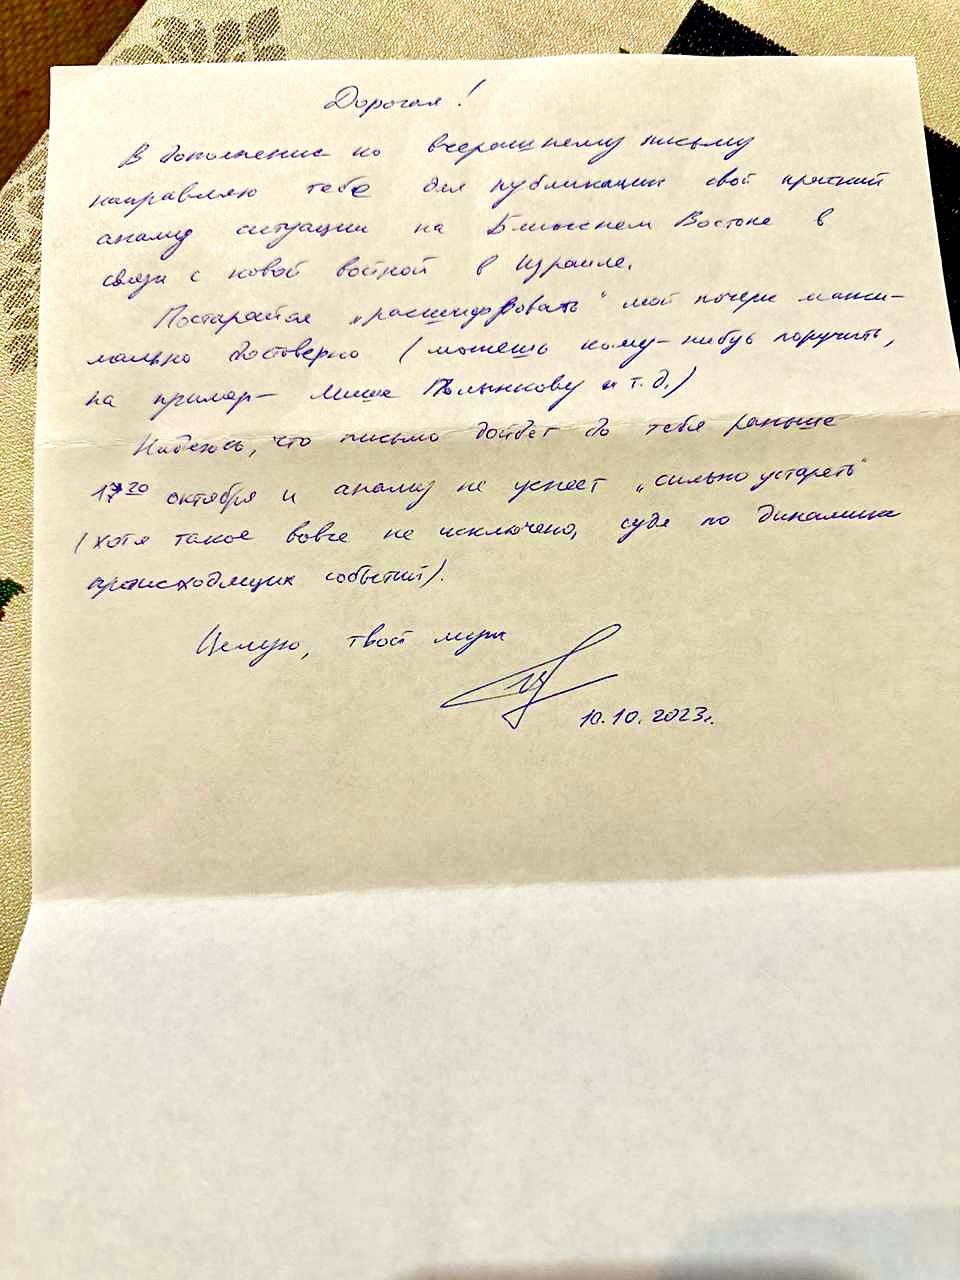 Дорогая!
В дополнение ко вчерашнему письму
направляю тебе для публикации свой краткий
анализ ситуации на Ближнем Востоке в
связи с новой войной в Израиле.
Постарайся „расшифровать“ мой почерк макси-
мально достоверно (можешь кому-нибудь поручить,
на пример- Мише и т.д.)
Надеюсь, что письмо дойдёт до тебя раньше
октября и анализ не успеет „сильно устареть“
(хотя такое вовсе не исключено, судя по динамике
происходящих событий).
Целую, твой муж
10.10.2023г.